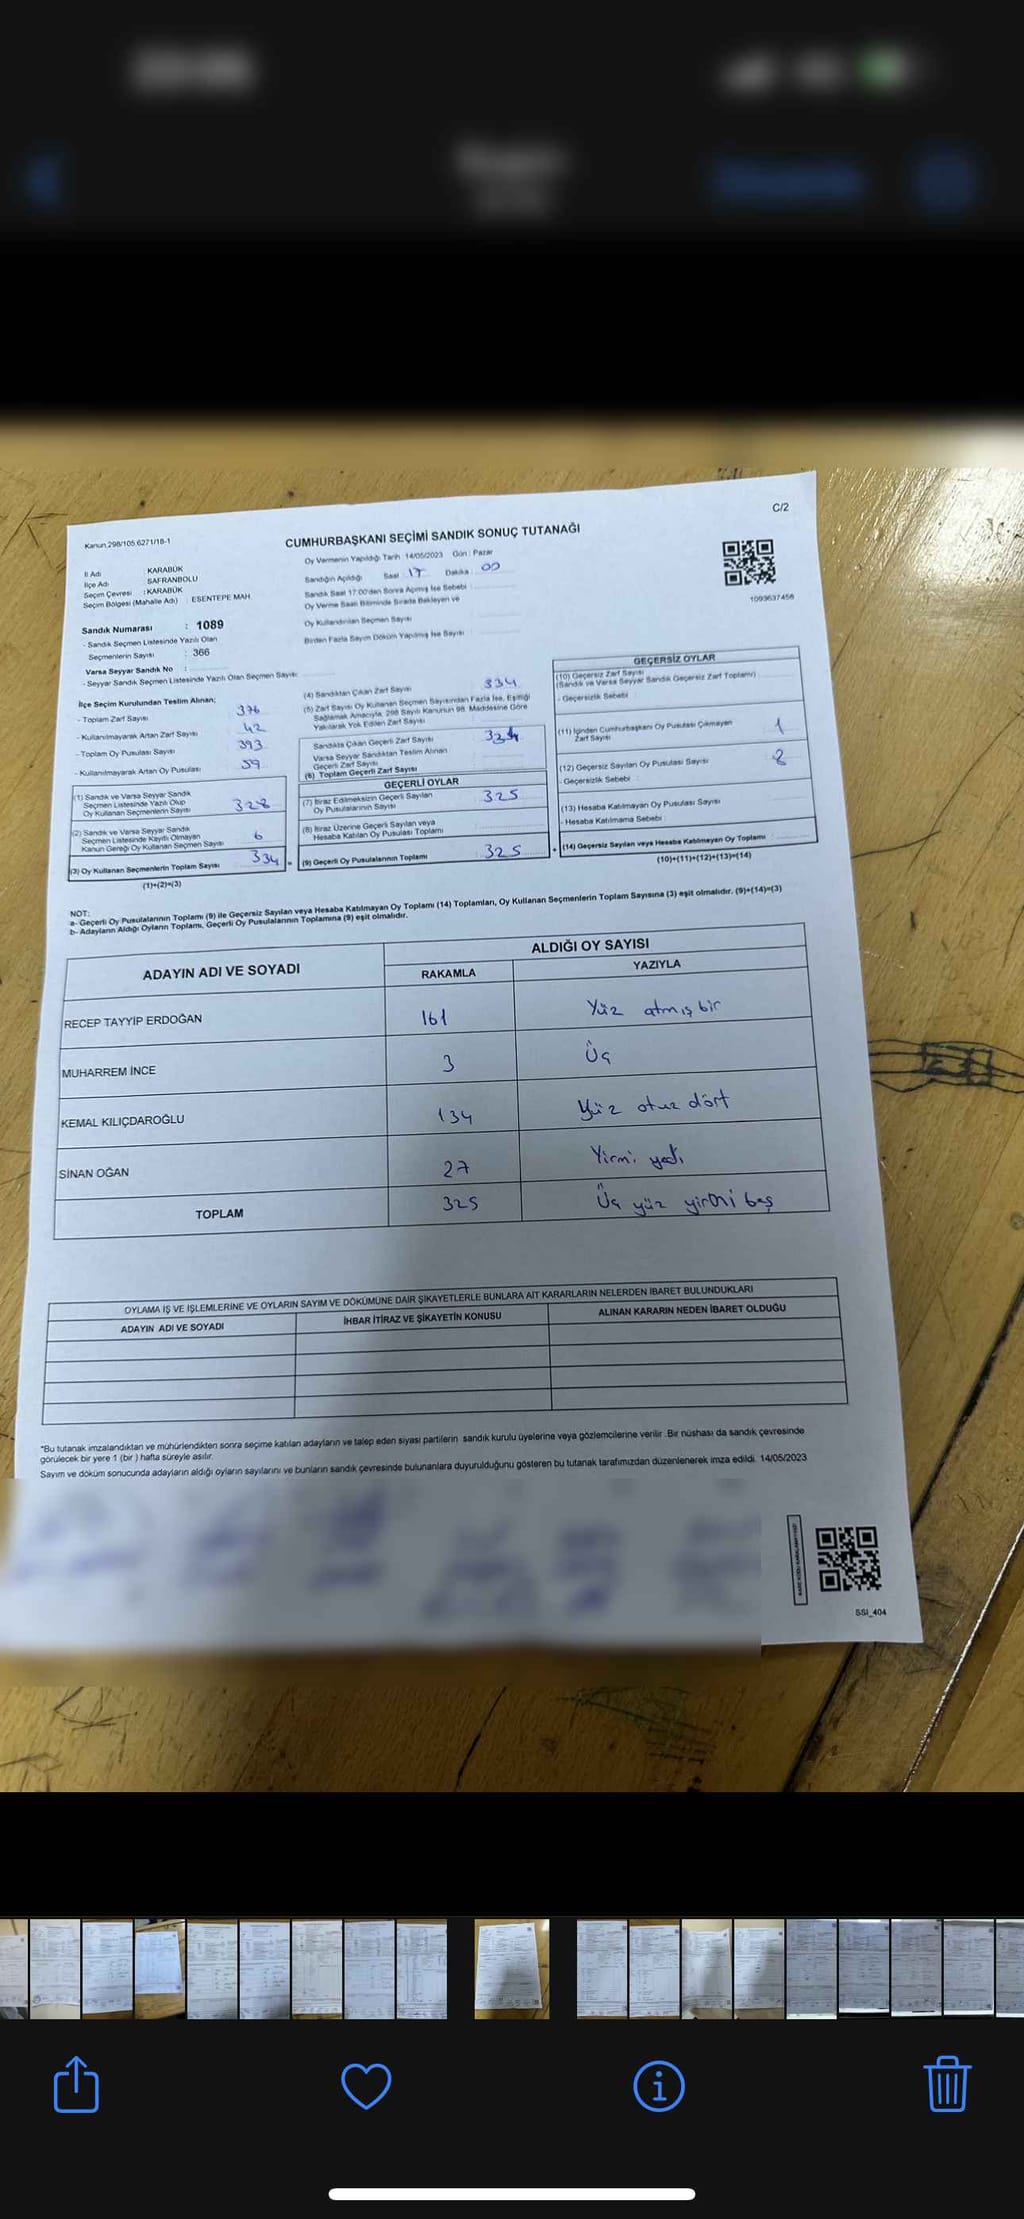 C/2
Kanun:298/105.6271/18-1
CUMHURBAŞKANI SEÇİMİ SANDIK SONUÇ TUTANAĞI
Oy Vermenin Yapıldığı Tarih: 14/05/2023 Gün : Pazar
İl Adı : KARABÜK
İlçe Adı : SAFRANBOLU
Seçim Çevresi : KARABÜK
Seçim Bölgesi (Mahalle Adı) : ESENTEPE MAH.
Sandığın Açıldığı Saat : 17 Dakika : 00
Sandık Saat 17.00'den Sonra Açılmış İse Sebebi :
Oy Verme Saati Bitiminde Sırada Bekleyen ve
Oy Kullandırılan Seçmen Sayısı
Birden Fazla Sayım Döküm Yapılmış İse Sayısı :
1093637456
Sandık Numarası : 1089
- Sandık Seçmen Listesinde Yazılı Olan
Seçmenlerin Sayısı : 366
Varsa Seyyar Sandık No :
- Seyyar Sandık Seçmen Listesinde Yazılı Olan Seçmen Sayısı:
İlçe Seçim Kurulundan Teslim Alınan;
- Toplam Zarf Sayısı 376
- Kullanılmayarak Artan Zarf Sayısı 42
- Toplam Oy Pusulası Sayısı 393
- Kullanılmayarak Artan Oy Pusulası 59
(1) Sandık ve Varsa Seyyar Sandık
Seçmen Listesinde Yazılı Olup
Oy Kullanan Seçmenlerin Sayısı 328
(2) Sandık ve Varsa Seyyar Sandık
Seçmen Listesinde Kayıtlı Olmayan
Kanun Gereği Oy Kullanan Seçmen Sayısı 6
(3) Oy Kullanan Seçmenlerin Toplam Sayısı 334 =
(1)+(2)=(3)
(4) Sandıktan Çıkan Zarf Sayısı 334
(5) Zarf Sayısı Oy Kullanan Seçmen Sayısından Fazla İse, Eşitliği
Sağlamak Amacıyla, 298 Sayılı Kanunun 98. Maddesine Göre
Yakılarak Yok Edilen Zarf Sayısı
Sandıkta Çıkan Geçerli Zarf Sayısı 334
Varsa Seyyar Sandıktan Teslim Alınan
Geçerli Zarf Sayısı
(6) Toplam Geçerli Zarf Sayısı
GEÇERLİ OYLAR
(7) İtiraz Edilmeksizin Geçerli Sayılan
Oy Pusulalarının Sayısı 325
(8) İtiraz Üzerine Geçerli Sayılan veya
Hesaba Katılan Oy Pusulası Toplamı
(9) Geçerli Oy Pusulalarının Toplamı 325 +
GEÇERSİZ OYLAR
(10) Geçersiz Zarf Sayısı
(Sandık ve Varsa Seyyar Sandık Geçersiz Zarf Toplamı)
- Geçersizlik Sebebi :
(11) İçinden Cumhurbaşkanı Oy Pusulası Çıkmayan
Zarf Sayısı 1
(12) Geçersiz Sayılan Oy Pusulası Sayısı 8
- Geçersizlik Sebebi :
(13) Hesaba Katılmayan Oy Pusulası Sayısı
- Hesaba Katılmama Sebebi :
(14) Geçersiz Sayılan veya Hesaba Katılmayan Oy Toplamı
(10)+(11)+(12)+(13)=(14)
NOT:
a- Geçerli Oy Pusulalarının Toplamı (9) ile Geçersiz Sayılan veya Hesaba Katılmayan Oy Toplamı (14) Toplamları, Oy Kullanan Seçmenlerin Toplam Sayısına (3) eşit olmalıdır. (9)+(14)=(3)
b- Adayların Aldığı Oyların Toplamı, Geçerli Oy Pusulalarının Toplamına (9) eşit olmalıdır.
ADAYIN ADI VE SOYADI ALDIĞI OY SAYISI
RAKAMLA YAZIYLA
RECEP TAYYİP ERDOĞAN 161 Yüz atmış bir
MUHARREM İNCE 3 Üç
KEMAL KILIÇDAROĞLU 134 Yüz otuz dört
SİNAN OĞAN 27 Yirmi yedi
TOPLAM 325 Üç yüz yirmi beş
OYLAMA İŞ VE İŞLEMLERİNE VE OYLARIN SAYIM VE DÖKÜMÜNE DAİR ŞİKAYETLERLE BUNLARA AİT KARARLARIN NELERDEN İBARET BULUNDUKLARI
ADAYIN ADI VE SOYADI İHBAR İTİRAZ VE ŞİKAYETİN KONUSU ALINAN KARARIN NEDEN İBARET OLDUĞU
*Bu tutanak imzalandıktan ve mühürlendikten sonra seçime katılan adayların ve talep eden siyasi partilerin sandık kurulu üyelerine veya gözlemcilerine verilir .Bir nüshası da sandık çevresinde
görülecek bir yere 1 (bir ) hafta süreyle asılır.
Sayım ve döküm sonucunda adayların aldığı oyların sayılarını ve bunların sandık çevresinde bulunanlara duyurulduğunu gösteren bu tutanak tarafımızdan düzenlenerek imza edildi. 14/05/2023
SSI_404